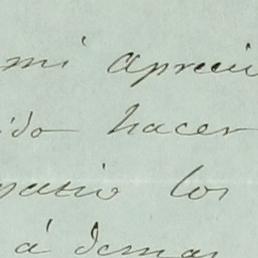 mi apreci
ido hacer
los
á demas